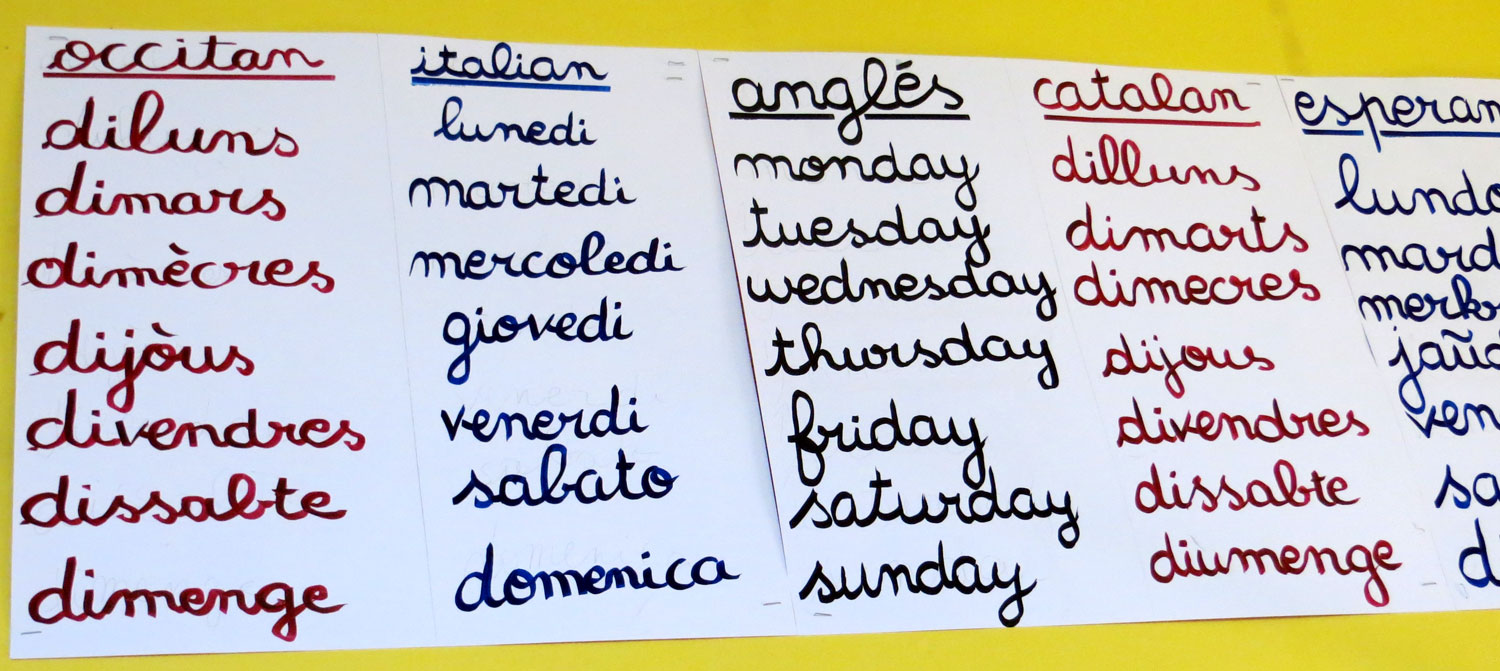 occitan
diluns
dimars
dimècres
dijòus
divendres
dissabte
dimenge
italian
lunedi
martedi
mercoledi
giovedi
venerdi
sabato
domenica
anglés
monday
tuesday
wednesday
thursday
friday
saturday
sunday
catalan
dilluns
dimarts
dimecres
dijous
divendres
dissabte
diumenge